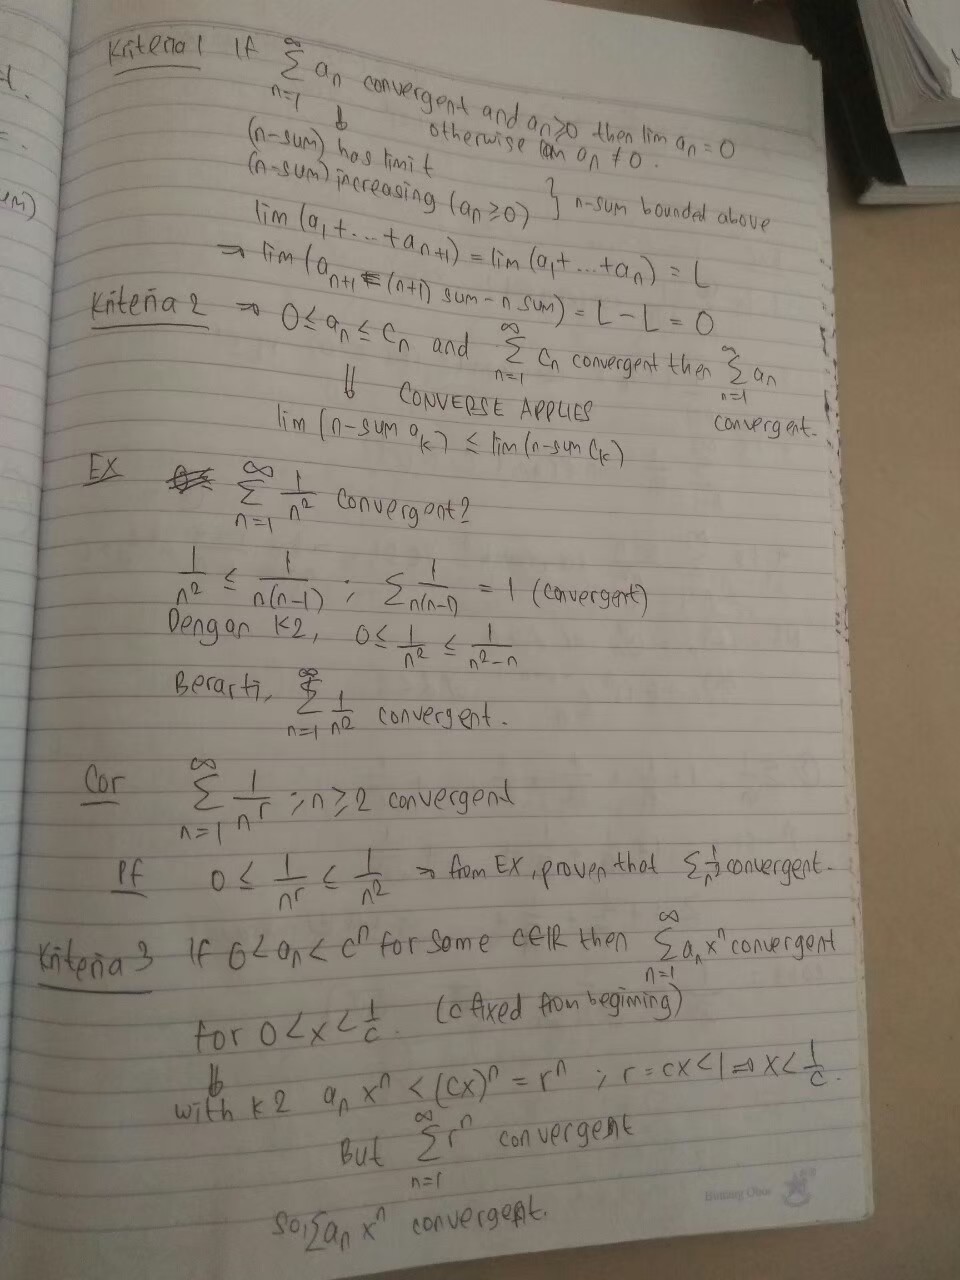 Kriteria 1 If ∑_{n=1}^{∞} aₙ convergent and aₙ ≥ 0 then lim aₙ = 0
otherwise lim aₙ ≠ 0.
⇓
(n-sum) has limit
(n-sum) increasing (aₙ ≥ 0) } n-sum bounded above
lim (a₁ + ... + aₙ₊₁) = lim (a₁ + ... + aₙ) = L
⇒ lim (aₙ₊₁ = (n+1) sum - n sum) = L - L = 0
Kriteria 2 ⇒ 0 ≤ aₙ ≤ cₙ and ∑_{n=1}^{∞} cₙ convergent then ∑_{n=1}^{∞} aₙ
convergent.
⇓ CONVERSE APPLIES
lim (n-sum aₖ) ≤ lim (n-sum cₖ)
EX ∑_{n=1}^{∞} 1/n² convergent?
1/n² ≤ 1/n(n-1) ; ∑ 1/n(n-1) = 1 (convergent)
Dengan K2, 0 ≤ 1/n² ≤ 1/n²-n
Berarti, ∑_{n=1}^{∞} 1/n² convergent.
Cor ∑_{n=1}^{∞} 1/nʳ ; n ≥ 2 convergent
Pf 0 ≤ 1/nʳ ≤ 1/n² ⇒ from EX, proven that ∑ 1/n² convergent.
Kriteria 3 If 0 < aₙ < cⁿ for some c ∈ ℝ then ∑_{n=1}^{∞} aₙxⁿ convergent
for 0 < x < 1/c. (c fixed from begining)
⇓
with K2 aₙxⁿ < (cx)ⁿ = rⁿ ; r = cx < 1 ⇒ x < 1/c.
But ∑_{n=1}^{∞} rⁿ convergent
So, ∑ aₙxⁿ convergent.
Bintang Obor